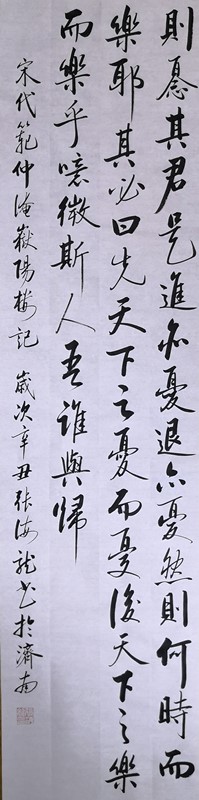 則憂其君是進亦憂退亦憂然則何時而
樂耶其必曰先天下之憂而憂後天下之樂
而樂乎噫微斯人吾誰與歸
宋代范仲淹嶽陽樓記 歲次辛丑張海龍書於濟南